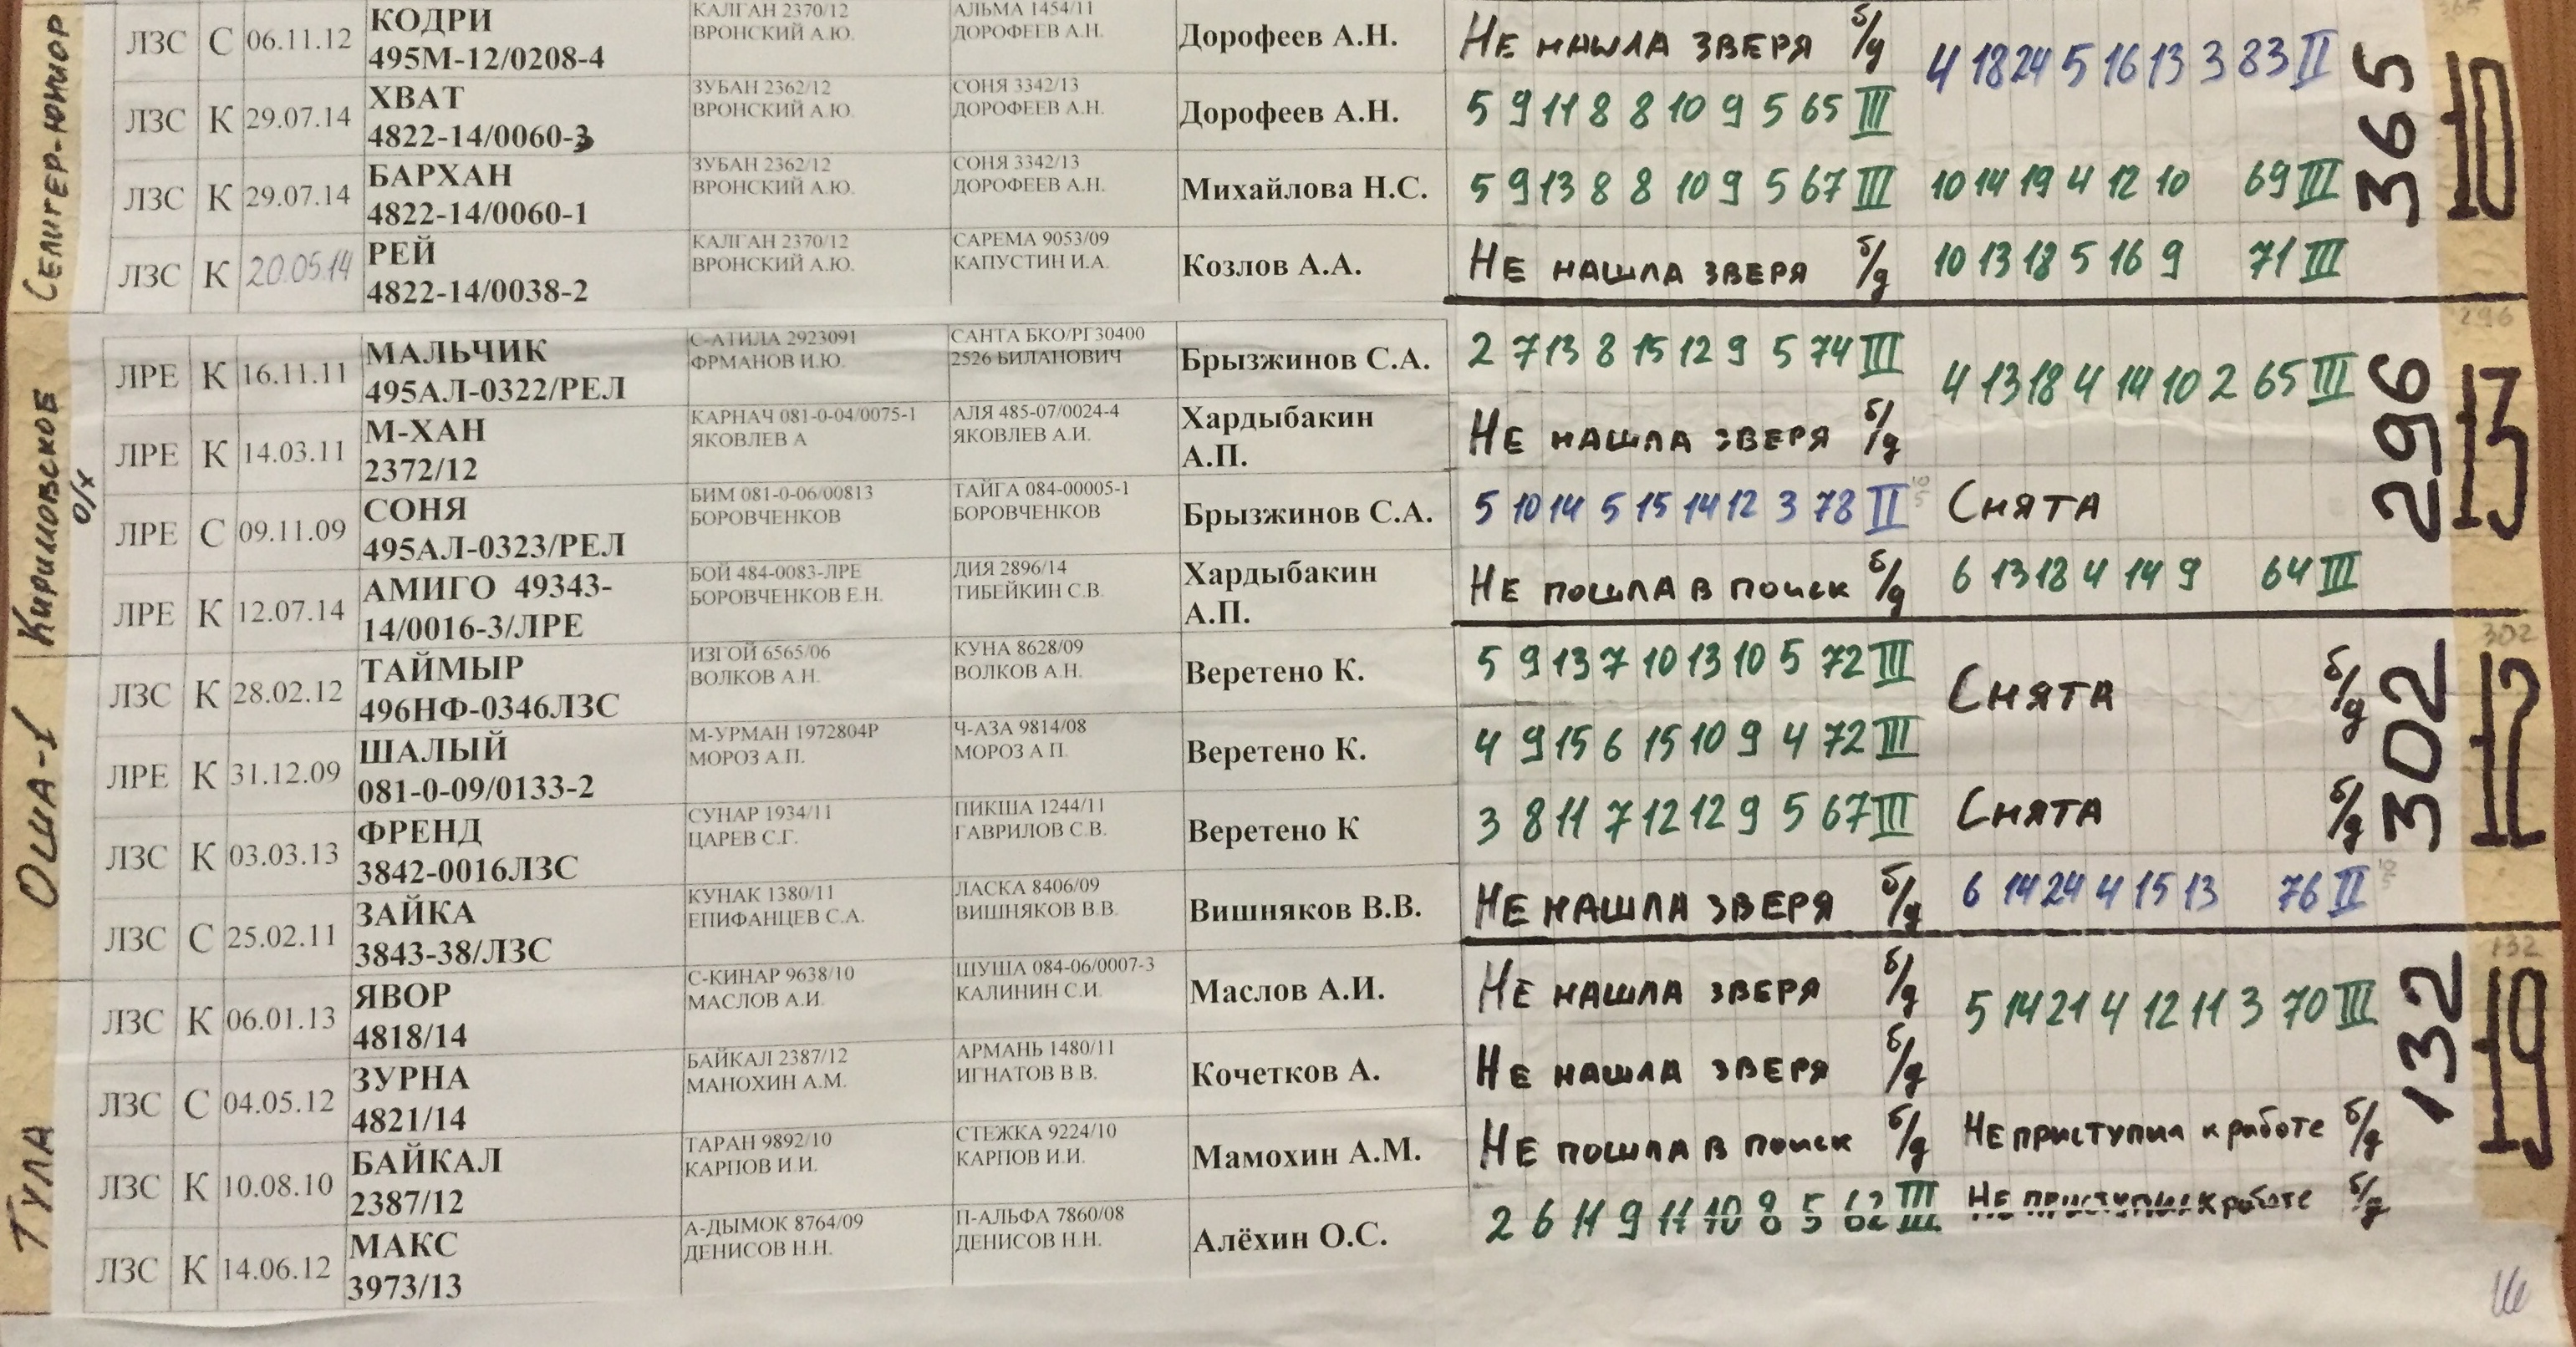 СЕЛИГЕР-ЮНИОР
ЛЗС С 06.11.12 КОДРИ 495М-12/0208-4 КАЛГАН 2370/12 ВРОНСКИЙ А.Ю. АЛЬМА 1454/11 ДОРОФЕЕВ А.Н. Дорофеев А.Н. НЕ НАШЛА ЗВЕРЯ б/д 4 18 24 5 16 13 3 83 II
ЛЗС К 29.07.14 ХВАТ 4822-14/0060-3 ЗУБАН 2362/12 ВРОНСКИЙ А.Ю. СОНЯ 3342/13 ДОРОФЕЕВ А.Н. Дорофеев А.Н. 5 9 11 8 8 10 9 5 65 III
ЛЗС К 29.07.14 БАРХАН 4822-14/0060-1 ЗУБАН 2362/12 ВРОНСКИЙ А.Ю. СОНЯ 3342/13 ДОРОФЕЕВ А.Н. Михайлова Н.С. 5 9 13 8 8 10 9 5 67 III 10 14 19 4 12 10 69 III
ЛЗС К 20.05.14 РЕЙ 4822-14/0038-2 КАЛГАН 2370/12 ВРОНСКИЙ А.Ю. САРЕМА 9053/09 КАПУСТИН И.А. Козлов А.А. НЕ НАШЛА ЗВЕРЯ б/д 10 13 18 5 16 9 71 III
365
10
КИРИЛЛОВСКОЕ О/Х
ЛРЕ К 16.11.11 МАЛЬЧИК 495АЛ-0322/РЕЛ С-АТИЛА 2923091 ФРМАНОВ И.Ю. САНТА БКО/РГ30400 2526 БИЛАНОВИЧ Брызжинов С.А. 2 7 13 8 15 12 9 5 74 III 4 13 18 4 14 10 2 65 III
ЛРЕ К 14.03.11 М-ХАН 2372/12 КАРНАЧ 081-0-04/0075-1 ЯКОВЛЕВ А АЛЯ 485-07/0024-4 ЯКОВЛЕВ А.И. Хардыбакин А.П. НЕ НАШЛА ЗВЕРЯ б/д
ЛРЕ С 09.11.09 СОНЯ 495АЛ-0323/РЕЛ БИМ 081-0-06/00813 БОРОВЧЕНКОВ ТАЙГА 084-00005-1 БОРОВЧЕНКОВ Брызжинов С.А. 5 10 14 5 15 14 12 3 78 II 10 5 СНЯТА
ЛРЕ К 12.07.14 АМИГО 49343-14/0016-3/ЛРЕ БОЙ 484-0083-ЛРЕ БОРОВЧЕНКОВ Е.Н. ДИЯ 2896/14 ТИБЕЙКИН С.В. Хардыбакин А.П. НЕ ПОШЛА В ПОИСК б/д 6 13 18 4 14 9 64 III
296
296
13
ОША-1
ЛЗС К 28.02.12 ТАЙМЫР 496НФ-0346ЛЗС ИЗГОЙ 6565/06 ВОЛКОВ А.Н. КУНА 8628/09 ВОЛКОВ А.Н. Веретено К. 5 9 13 7 10 13 10 5 72 III СНЯТА б/д
ЛРЕ К 31.12.09 ШАЛЫЙ 081-0-09/0133-2 М-УРМАН 1972804Р МОРОЗ А.П. Ч-АЗА 9814/08 МОРОЗ А.П. Веретено К. 4 9 15 6 15 10 9 4 72 III
ЛЗС К 03.03.13 ФРЕНД 3842-0016ЛЗС СУНАР 1934/11 ЦАРЕВ С.Г. ПИКША 1244/11 ГАВРИЛОВ С.В. Веретено К 3 8 11 7 12 12 9 5 67 III СНЯТА б/д
ЛЗС С 25.02.11 ЗАЙКА 3843-38/ЛЗС КУНАК 1380/11 ЕПИФАНЦЕВ С.А. ЛАСКА 8406/09 ВИШНЯКОВ В.В. Вишняков В.В. НЕ НАШЛА ЗВЕРЯ б/д 6 14 24 4 15 13 76 II 10 5
302
302
12
ТУЛА
ЛЗС К 06.01.13 ЯВОР 4818/14 С-КИНАР 9638/10 МАСЛОВ А.И. ШУША 084-06/0007-3 КАЛИНИН С.И. Маслов А.И. НЕ НАШЛА ЗВЕРЯ б/д 5 14 21 4 12 11 3 70 III
ЛЗС С 04.05.12 ЗУРНА 4821/14 БАЙКАЛ 2387/12 МАНОХИН А.М. АРМАНЬ 1480/11 ИГНАТОВ В.В. Кочетков А. НЕ НАШЛА ЗВЕРЯ б/д
ЛЗС К 10.08.10 БАЙКАЛ 2387/12 ТАРАН 9892/10 КАРПОВ И.И. СТЕЖКА 9224/10 КАРПОВ И.И. Мамохин А.М. НЕ ПОШЛА В ПОИСК б/д НЕ ПРИСТУПИЛ К РАБОТЕ б/д
ЛЗС К 14.06.12 МАКС 3973/13 А-ДЫМОК 8764/09 ДЕНИСОВ Н.Н. П-АЛЬФА 7860/08 ДЕНИСОВ Н.Н. Алёхин О.С. 2 6 11 9 11 10 8 5 62 III НЕ ПРИСТУПИЛ К РАБОТЕ б/д
132
132
19
16